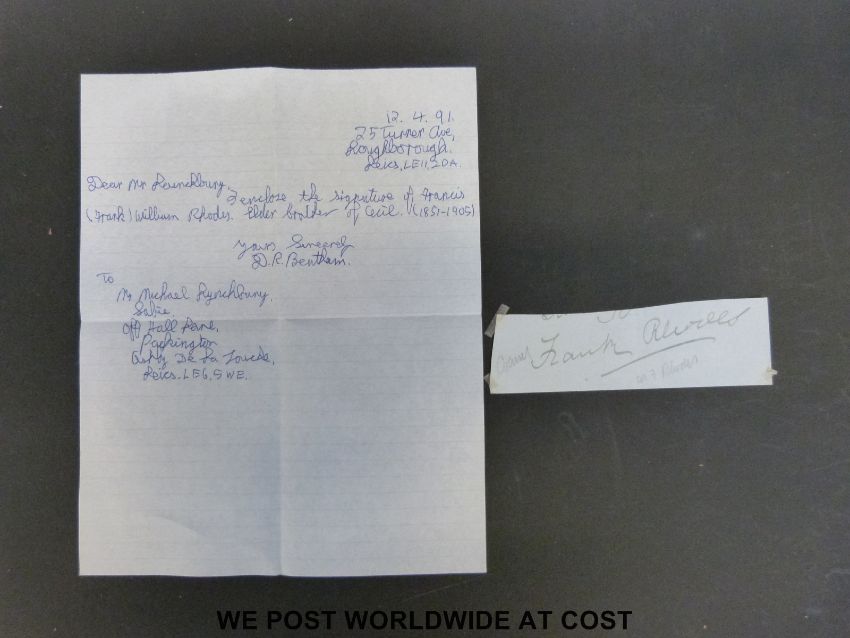 12. 4. 91.
25 Turner Ave,
Loughborough.
Leics, LE11, 2DA.
Dear Mr
I enclose the signature of Francis
(Frank) William Rhodes. Elder brother of Cecil. (1851-1905)
Yours Sincerely
D.R. Bentham.
To
Mr Michael Lynchbury.
Off Hall Lane,
Packington
Ashby De La Zouch,
Leics. LE6, 5WE.
Frank Rhodes
Rhodes
WE POST WORLDWIDE AT COST